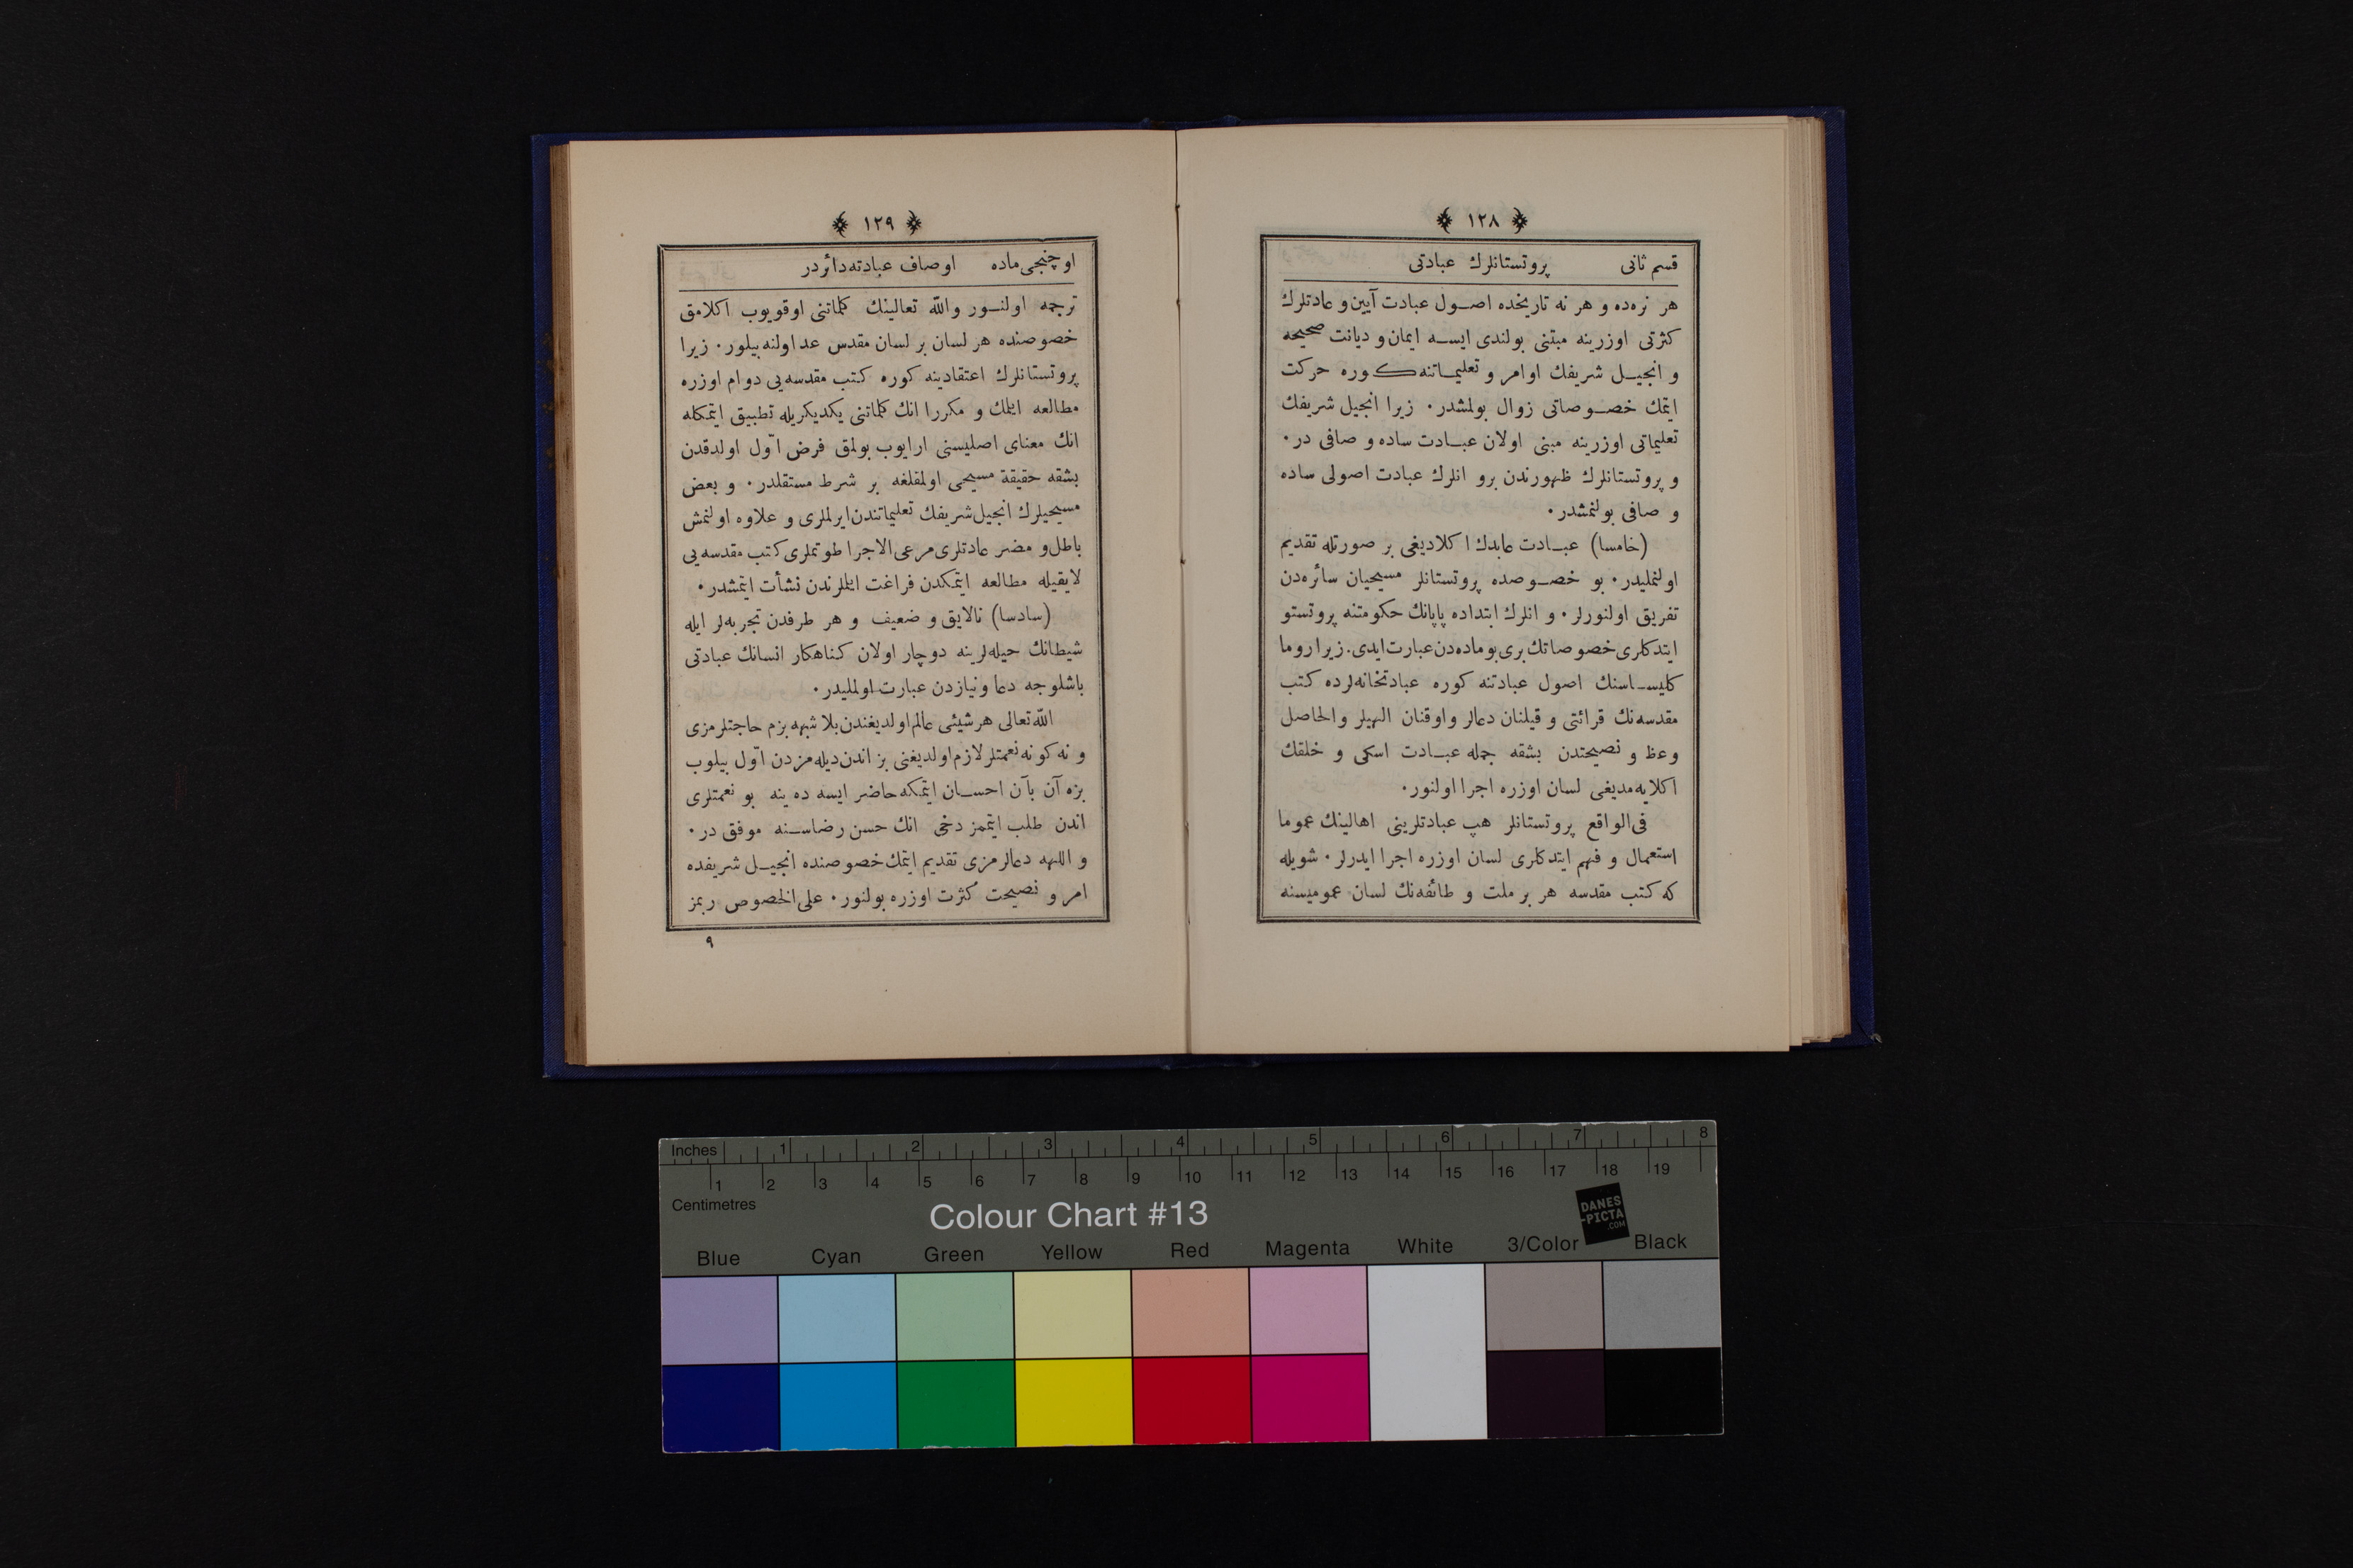 ﴿ ١٢٨ ﴾
قسم ثانی پروتستانلرك عبادتی
هر نره‌ده و هر نه تاريخده اصــول عبادت آيين و عادتلرك
كثرتی اوزرينه مبتنی بولندی ايســه ايمان و ديانت صحيحه
و انجيــل شريفك اوامر و تعليمــاتنه كوره حركت
ايتمك خصــوصاتی زوال بولمشدر. زيرا انجيل شريفك
تعليماتی اوزرينه مبنی اولان عبــادت ساده و صافی در.
و پروتستانلرك ظهورندن برو انلرك عبادت اصولی ساده
و صافی بولنمشدر.
(خامسا) عبــادت عابدك اكلاديغی بر صورتله تقديم
اولنمليدر. بو خصــوصده پروتستانلر مسيحيان سائره‌دن
تفريق اولنورلر. و انلرك ابتداده پاپانك حكومتنه پروتستو
ايتدكلری خصوصاتك بری بو ماده‌دن عبارت ايدی. زيرا روما
كليســاسنك اصول عبادتنه كوره عبادتخانه‌لرده كتب
مقدسه‌نك قرائتی و قيلنان دعالر و اوقنان الهيلر و الحاصل
وعظ و نصيحتدن بشقه جمله عبــادت اسكی و خلقك
اكلايه‌مديغی لسان اوزره اجرا اولنور.
فی‌الواقع پروتستانلر هپ عبادتلرينی اهالينك عموما
استعمال و فهم ايتدكلری لسان اوزره اجرا ايدرلر. شويله
كه كتب مقدسه هر بر ملت و طائفه‌نك لسان عموميسنه
﴿ ١٢٩ ﴾
اوچنجی ماده اوصاف عبادته دائردر
ترجمه اولنــور و اللّٰه تعالينك كلماتنی اوقويوب اكلامق
خصوصنده هر لسان بر لسان مقدس عد اولنه‌بيلور. زيرا
پروتستانلرك اعتقادينه كوره كتب مقدسه‌يی دوام اوزره
مطالعه ايلمك و مكررا انك كلماتنی يكديكريله تطبيق ايتمكله
انك معنای اصليسنی ارايوب بولمق فرض اوّل اولدقدن
بشقه حقيقة مسيحی اولمقلغه بر شرط مستقلدر. و بعض
مسيحيلرك انجيل شريفك تعليماتندن ايرلملری و علاوه اولنمش
باطل و مضر عادتلری مرعی الاجرا طوتملری كتب مقدسه‌يی
لايقيله مطالعه ايتمكدن فراغت ايلملرندن نشأت ايتمشدر.
(سادسا) نالايق و ضعيف و هر طرفدن تجربه‌لر ايله
شيطانك حيله‌لرينه دوچار اولان كناهكار انسانك عبادتی
باشلوجه دعا و نيازدن عبارت اولمليدر.
اللّٰه تعالی هر شيئی عالم اولديغندن بلا شبهه بزم حاجتلرمزی
و نه كونه نعمتلر لازم اولديغنی بز اندن ديله‌مزدن اوّل بيلوب
بزه آن بآن احســان ايتمكه حاضر ايسه ده ينه بو نعمتلری
اندن طلب ايتممز دخی انك حسن رضاســنه موفق در.
و اللهه دعالرمزی تقديم ايتمك خصوصنده انجيــل شريفده
امر و نصيحت كثرت اوزره بولنور. علی الخصوص ربمز
٩
Inches 1 2 3 4 5 6 7 8
1 2 3 4 5 6 7 8 9 10 11 12 13 14 15 16 17 18 19
Centimetres
Colour Chart #13
DANES
-PICTA
.COM
Blue Cyan Green Yellow Red Magenta White 3/Color Black